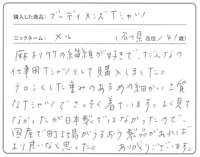 購入した商品: ブーディメンズTシャツ
ニックネーム: メル 石川県 在住 / 41 歳
麻よりケの繊維が好きで、だんなの
仕事用Tシャツとして購入しました。
テロンとした重みのあるめの細かい上質
なTシャツでさっそく着ています。よく見て
なかったが日本製ではなかったので、
国産で町工場がつくる製品があれば
より良いなと思った。 ありがとうございます。